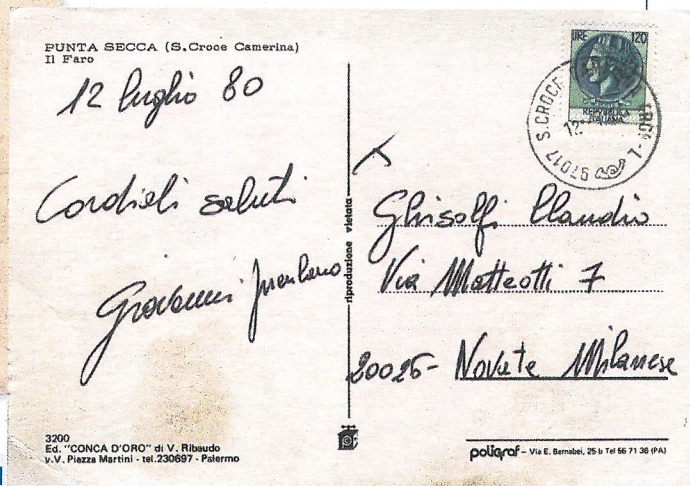 PUNTA SECCA (S.Croce Camerina)
Il Faro
12 luglio 80
Cordiali saluti
Giovanni
riproduzione vietata
LIRE 120
REPVBBLICA
ITALIANA
97017 S.CROCE
12
Ghisolfi Claudio
Via Matteotti 7
20026 - Novate Milanese
3200
Ed. "CONCA D'ORO" di V. Ribaudo
v.V. Piazza Martini - tel.230697 - Palermo
poligraf - Via E. Bernabei, 25-b Tel 56 71 36 (PA)